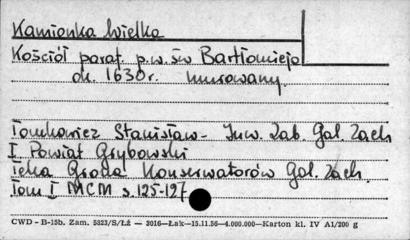 Kamionka Wielka
Kościół paraf. p.w. św Bartłomieja
ok. 1630r. murowany.
Tomkowicz Stanisław - Inw. Zab. Gal. Zach
I Powiat Grybowski
Teka Grona Konserwatorów Gal. Zach.
Tom I MCM s. 125-127
CWD - B-15b. Zam. 5823/S/ŁŻ — 3016—Łak—15.11.56—4.000.000—Karton kl. IV A1/200 g